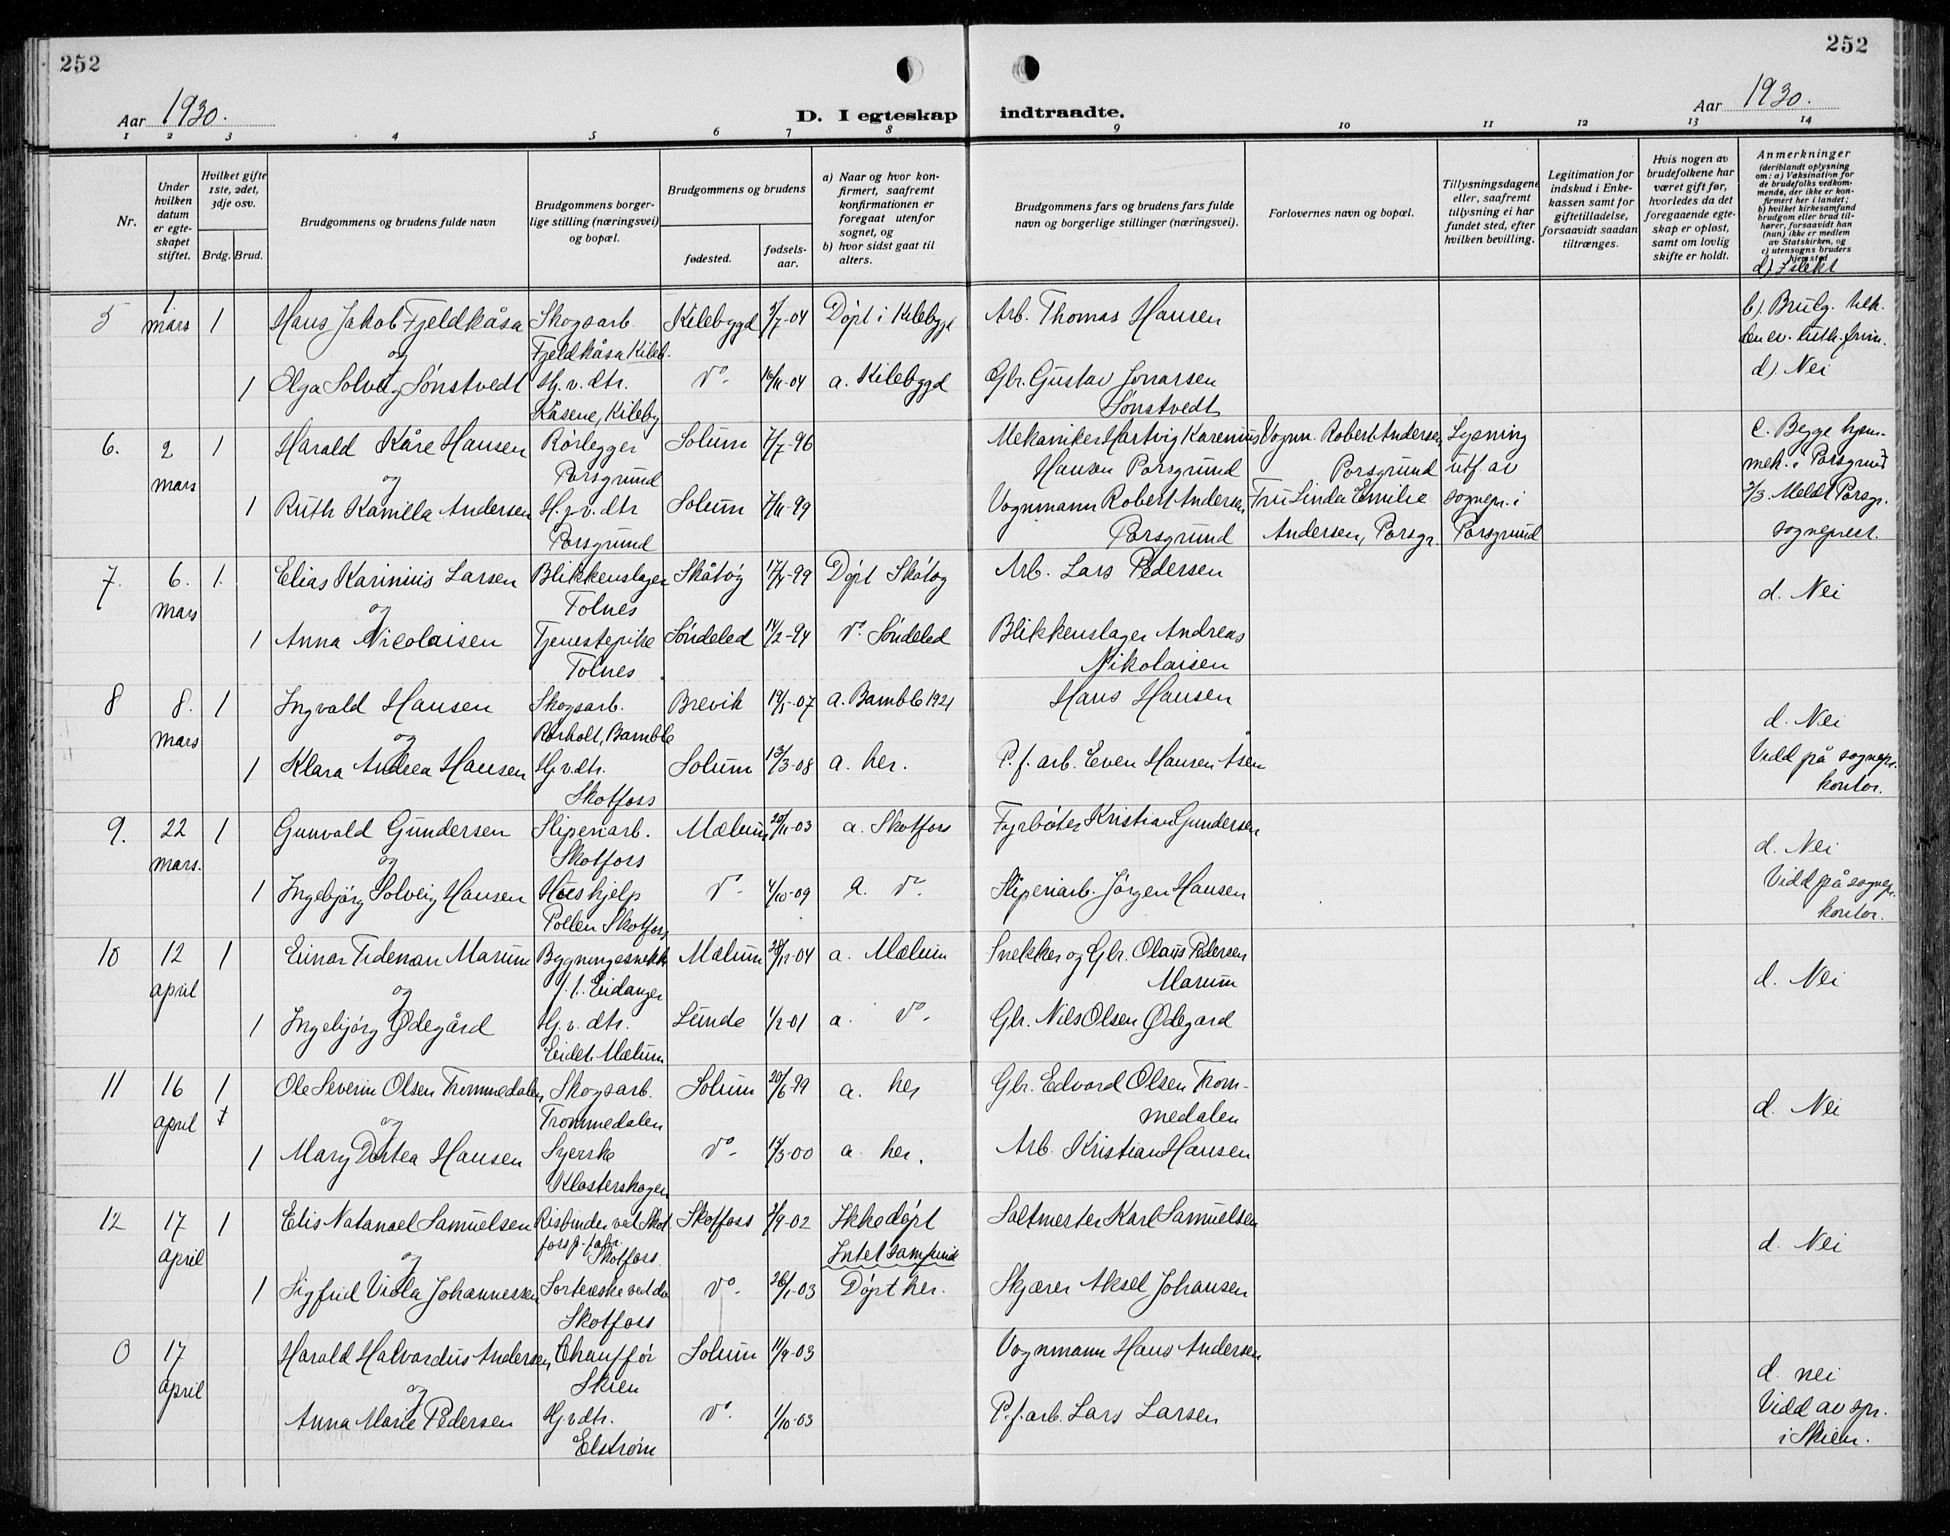 252
252
Aar 1930.
D. I egteskap indtraadte.
Aar 1930.
1 2 3 4 5 6 7 8 9 10 11 12 13 14
Nr.
Under hvilken datum er egteskapet stiftet.
Hvilket gifte 1ste, 2det, 3dje osv.
Brdg. Brud.
Brudgommens og brudens fulde navn
Brudgommens borgerlige stilling (næringsvei) og bopæl.
Brudgommens og brudens
fødested.
fødselsaar.
a) Naar og hvor konfirmert, saafremt konfirmationen er foregaat utenfor sognet, og
b) hvor sidst gaat til alters.
Brudgommens fars og brudens fars fulde navn og borgerlige stillinger (næringsvei).
Forlovernes navn og bopæl.
Tillysningsdagene eller, saafremt tillysning ei har fundet sted, efter hvilken bevilling.
Legitimation for indskud i Enkekassen samt for giftetilladelse, forsaavidt saadan tiltrænges.
Hvis nogen av brudefolkene har været gift før, hvorledes da det foregaaende egteskap er opløst, samt om lovlig skifte er holdt.
Anmerkninger
(deriblandt oplysning om: a) Vaksination for de brudefolks vedkommende, der ikke er konfirmert her i landet; b) hvilket kirkesamfund brudgom eller brud tilhører, forsaavidt han (hun) ikke er medlem av Statskirken, og c) utensogns bruders hjemsted
d) I slekt
5 1 mars 1 Hans Jakob Fjeldkåsa Skogsarb. Kilebygd 5/7-04 Døpt i Kilebygd Arb. Thomas Hansen b). Brudg. bek.
og Fjeldkåsa Kileb. den ev. luth. frim.
1 Olga Solveig Sønstvedt Hj. v. dtr. do- 16/11-04 a. Kilebygd Gbr. Gustav Jonarsen d). Nei
Kåsene, Kileby Sønstvedt
6. 2 mars 1 Harald Kåre Hansen Rørlegger Solum 7/7-96 Mekaniker Hartvig Karenius Vognm. Robert Andersen Lysning C. Begge hjem-
og Porsgrund Hansen Porsgrund Porsgrund utf. av mek. i Porsgrund
1 Ruth Kamilla Andersen Hj. v. dtr Solum 7/11-99 Vognmann Robert Andersen, Fru Linda Emilie sognepr. i 2/3. Meldt Porsgr.
Porsgrund Porsgrund Andersen, Porsgr. Porsgrund sogneprest.
7. 6. mars 1. Elias Karinius Larsen Blikkenslager Skåtøy 17/8-99 Døpt Skåtøy Arb. Lars Pedersen d. Nei
og Tolnes
1 Anna Nicolaisen Tjenestepike Søndeled 14/2-94 do. Søndeled Blikkenslager Andreas
Tolnes Nikolaisen
8 8. mars 1 Ingvald Hansen Skogsarb. Brevik 19/5-07 a. Bamble 1921 Hans Hansen d. Nei
og Rørholt, Bamble
1 Klara Andrea Hansen Hj. v. dtr. Solum 13/3-08 a. her. P. f. arb. Even Hansen Åsen Vidd på sognepr.
Skotfoss kontor.
9. 22 mars. 1 Gunvald Gundersen Sliperiarb. Mælum 20/11-03 a. Skotfoss Fyrbøter Kristian Gundersen d. Nei
og Skotfoss
1 Ingebjørg Solveig Hansen Hushjelp do- 4/10-09 a. do. Sliperiarb. Jørgen Hansen Vidd på sognepr.
Pollen Skotfoss kontor.
10 12 april 1 Einar Tideman Marum Bygningssnekk. Mælum 28/12-04 a. Mælum Snekker og Gbr. Olaus Pedersen d. Nei
og Eidanger Marum
1 Ingebjørg Ødegård Hj. v. dtr. Lunde 1/2-01 a. do. Gbr. Nils Olsen Ødegard
Eidet. Mælum
11 16 april 1 Ole Severin Olsen Trommedalen, Skogsarb. Solum 20/6-99 a. her Gbr. Edvard Olsen Trom- d. Nei
og Trommedalen medalen
1 Mary Dortea Hansen Syerske do- 14/3-00 a. her. Arb. Kristian Hansen
Klosterskogen
12 17 april 1 Elis Natanael Samuelsen Risbinder ved Skot Skotfoss 3/9-02 Ikke døpt Saltmester Karl Samuelsen d. Nei
og foss p. fabr. Skotfoss. Intet samfund
1 Sigfrid Viola Johannessen Sorterske ved do do- 26/1-03 Døpt her. Skjærer Aksel Johansen
Skotfoss
0 17 april Harald Halvardus Andersen, Chauffør Solum 11/9-03 Vognmann Hans Andersen d. nei
og Skien
Anna Marie Pedersen Hj. v. dtr. do. 1/10-03 P. f. arb. Lars Larsen Vidd av spr.
Elstrøm i Skien.